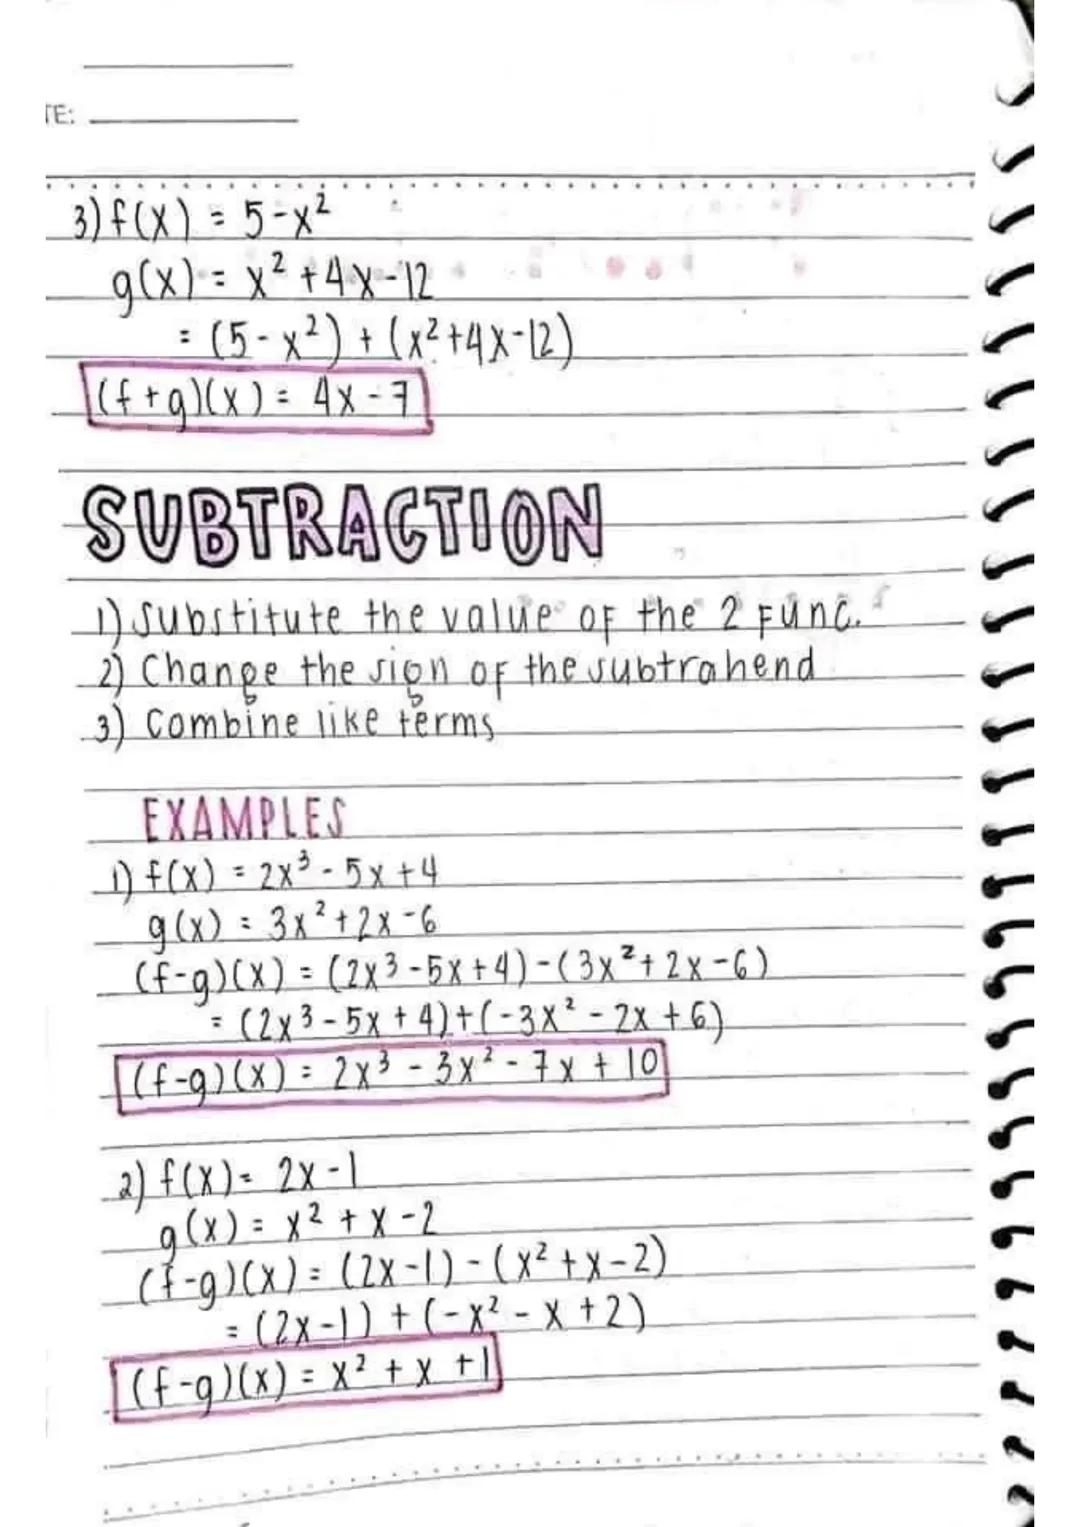 TE:
3) f(x) = 5-x²
g(x) = x² +4x-12
= (5-x²) + (x²+4x-12)
(f+g)(x) = 4x-7
SUBTRACTION
1) Substitute the value of the 2 Func.
2) Change the sign of the subtrahend
3) Combine like terms
EXAMPLES
1) f(x) = 2x³-5x+4
g(x) = 3x²+2x-6
(f-g)(x) = (2x³-5x+4)-(3x²+2x-6)
= (2x³-5x+4)+(-3x²-2x+6)
(f-g)(x) = 2x³-3x²-7x+10
2) f(x) = 2x-1
g(x) = x²+x-2
(f-g)(x) = (2x-1)-(x²+x-2)
= (2x-1)+(-x²-x+2)
(f-g)(x) = x²+x+1